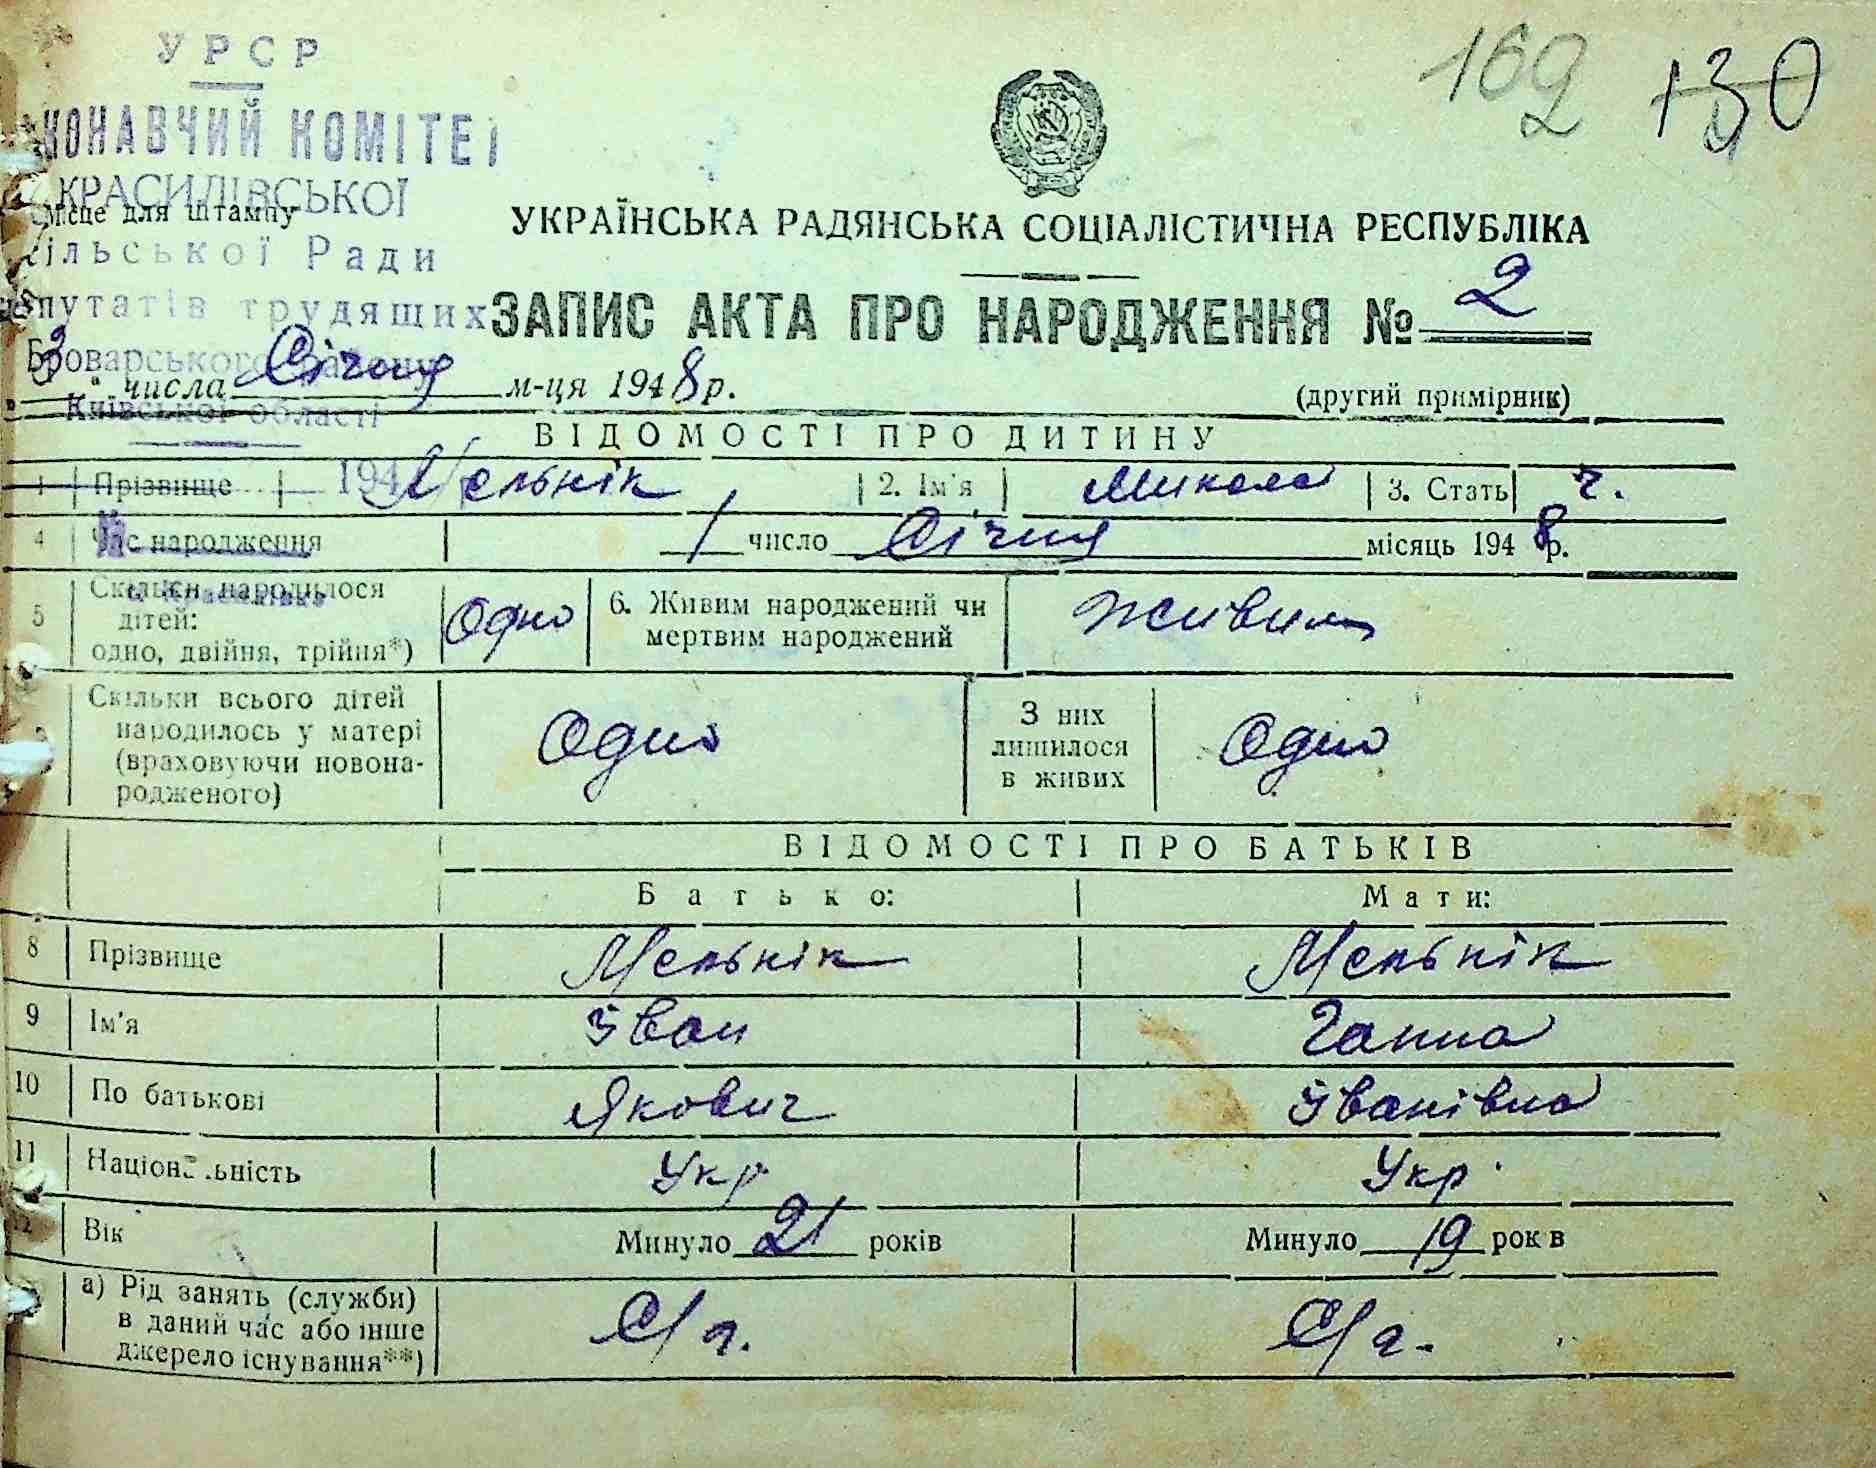 УРСР
КОНАВЧИЙ КОМІТЕТ
КРАСИЛІВСЬКОЇ
Місце для штампу
сільської Ради
депутатів трудящих
Броварського району
Київської області
194
с. Красилівка
169 130
УКРАЇНСЬКА РАДЯНСЬКА СОЦІАЛІСТИЧНА РЕСПУБЛІКА
ЗАПИС АКТА ПРО НАРОДЖЕННЯ № 2
3 числа Січня м-ця 1948 р.
(другий примірник)
ВІДОМОСТІ ПРО ДИТИНУ
1 Прізвище Мельнік 2. Ім'я Микола 3. Стать ч.
4 Час народження 1 число Січня місяць 1948 р.
5 Скільки народилося дітей: одно, двійня, трійня*) Одно 6. Живим народжений чи мертвим народжений Живим
Скільки всього дітей народилось у матері (враховуючи новонародженого) Одно З них лишилося в живих Одно
ВІДОМОСТІ ПРО БАТЬКІВ
Батько: Мати:
8 Прізвище Мельнік Мельнік
9 Ім'я Іван Ганна
10 По батькові Якович Іванівна
11 Національність Укр Укр
12 Вік Минуло 21 років Минуло 19 рок в
а) Рід занять (служби) в даний час або інше джерело існування**) С/г. С/г.